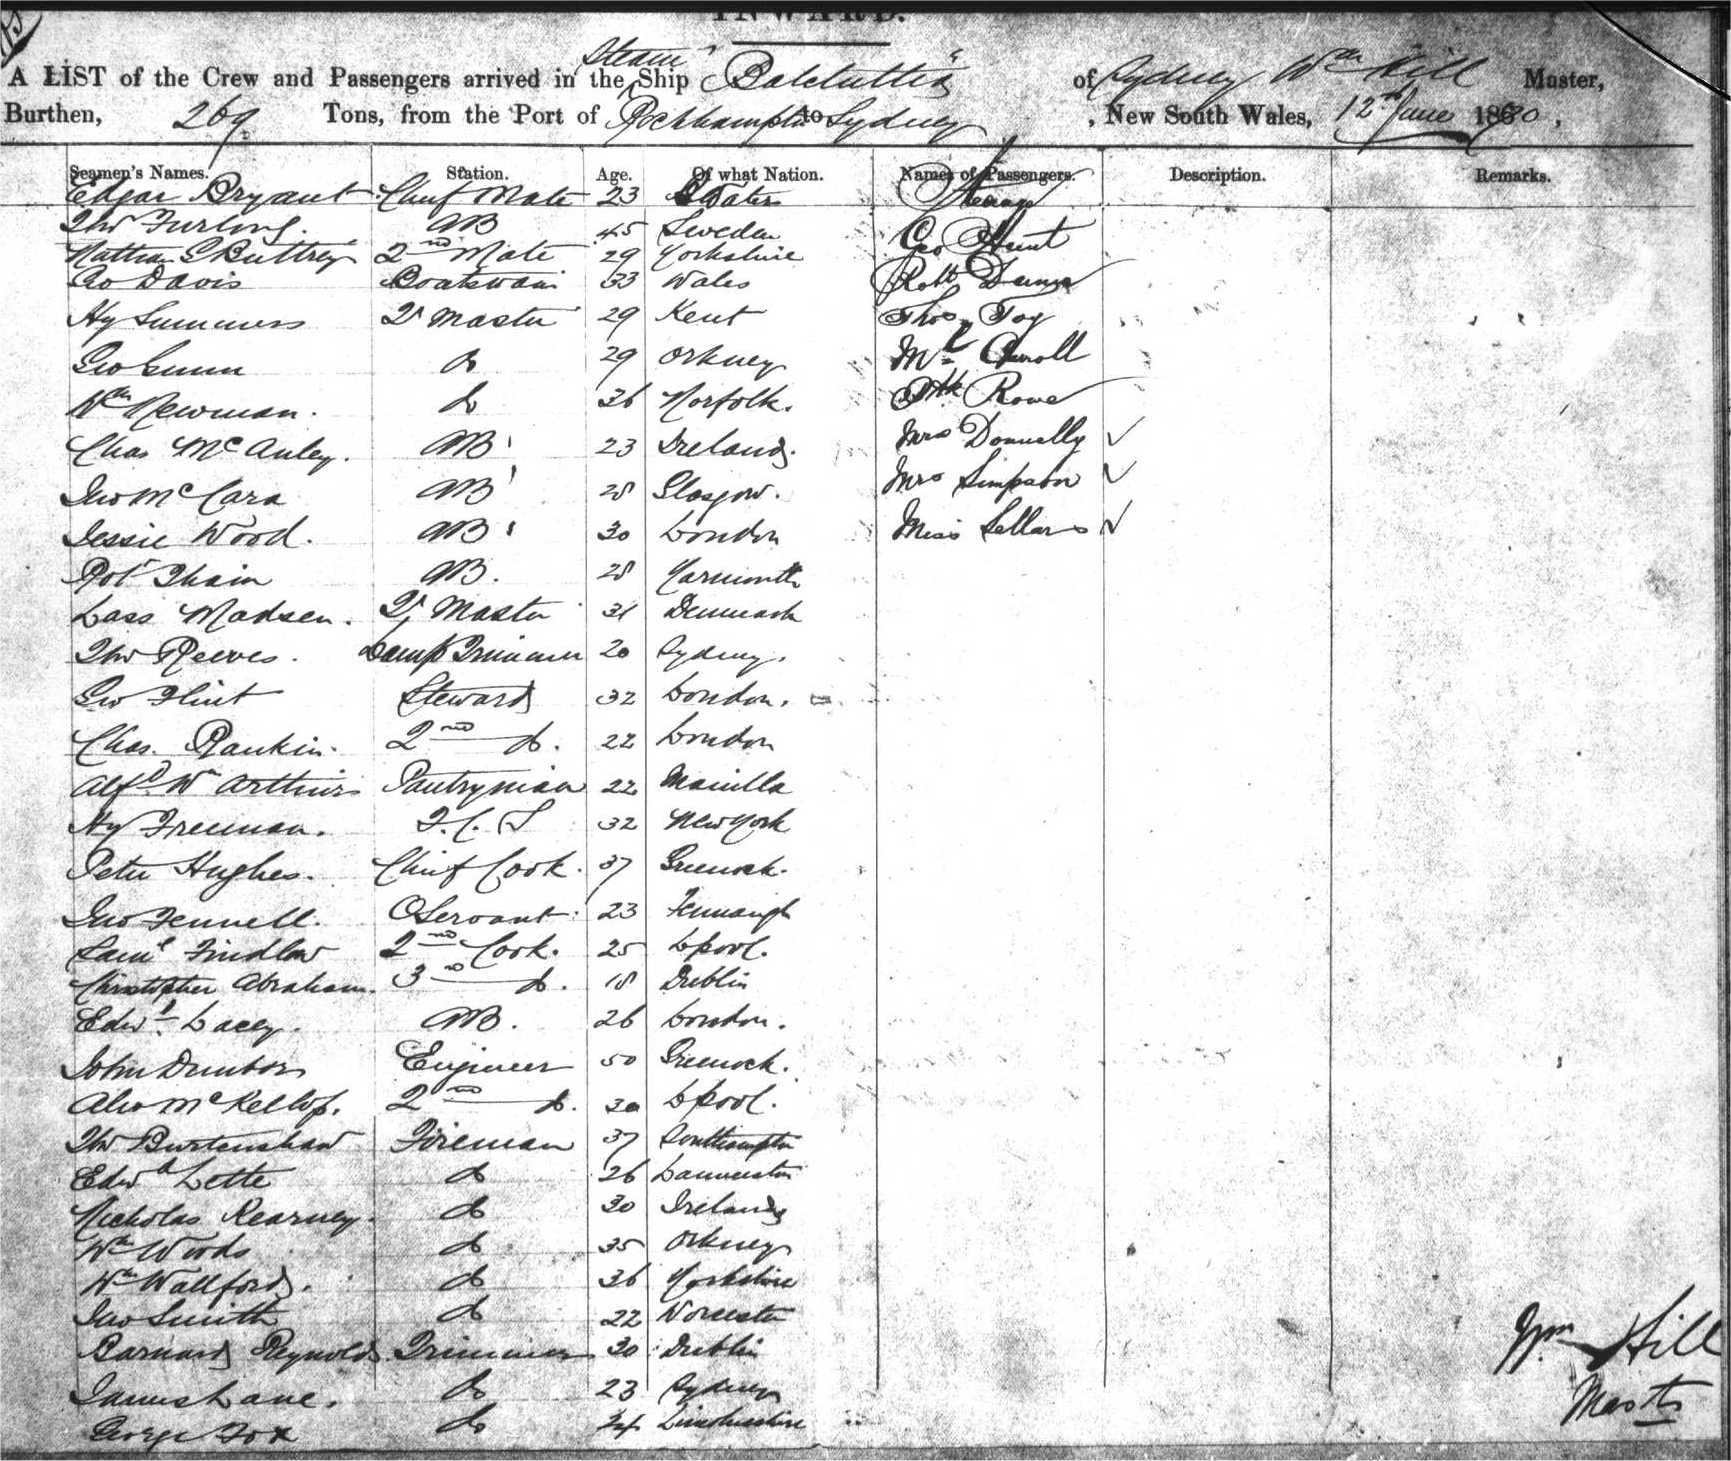 INWARD.
A LIST of the Crew and Passengers arrived in the Steam Ship "Balclutha" of Sydney Wm Hill Master,
Burthen, 269 Tons, from the Port of Rockhampton to Sydney, New South Wales, 12th June 1870,
Seamen's Names. Station. Age. Of what Nation. Names of Passengers. Description. Remarks.
Edgar Bryant Chief Mate 23 Steerage
Thos Furlong. AB 45 Sweden Geo Hunt
Nathan G Buttrey 2nd Mate 29 Yorkshire
Geo Davis Boatswain 33 Wales Robt
Hy Summers Qr Master 29 Kent Thos Foy
Geo Gunn do 29 Orkney Mr Carroll
Wm Newman. do 36 Norfolk. Rowe
Chas McAuley. AB 23 Ireland. Mrs Donnelly ✓
Jno McCara AB 28 Glasgow. Mrs Simpson ✓
Jessie Wood. AB 30 London Miss Sellars ✓
Robt Thain AB. 28 Yarmouth
Lass Madsen. Qr Master 31 Denmark
Thos Reeves. Lamp Trimmer 20 Sydney.
Geo Flint Steward 32 London.
Chas. Rankin. 2nd do. 22 London
Alfd Wm Arthurs Pantryman 22 Manilla
Hy Freeman. F.C.S 32 New York
Peter Hughes. Chief Cook. 37 Greenock.
Jno Fennell. Servant 23
Saml Findlow 2nd Cook. 25 Lpool.
Christopher Abraham. 3rd do. 18 Dublin
Edwd Lacey. AB. 26 London.
John Dunbar Engineer 50 Greenock.
Alex McKellop. 2nd do. 30 Lpool.
Thos Burtenshaw Fireman 37 Southampton
Edwd Lette do 26 Launceston
Nicholas Kearney. do 30 Ireland
Wm Woods do 35 Orkney
Wm Wallford. do 36 Yorkshire
Jno Smith do 22 Worcester
Barnard Reynolds Trimmer 30 Dublin
James Lane. do 23 Sydney
George Fox do 24 Lincolnshire
Wm Hill
Master